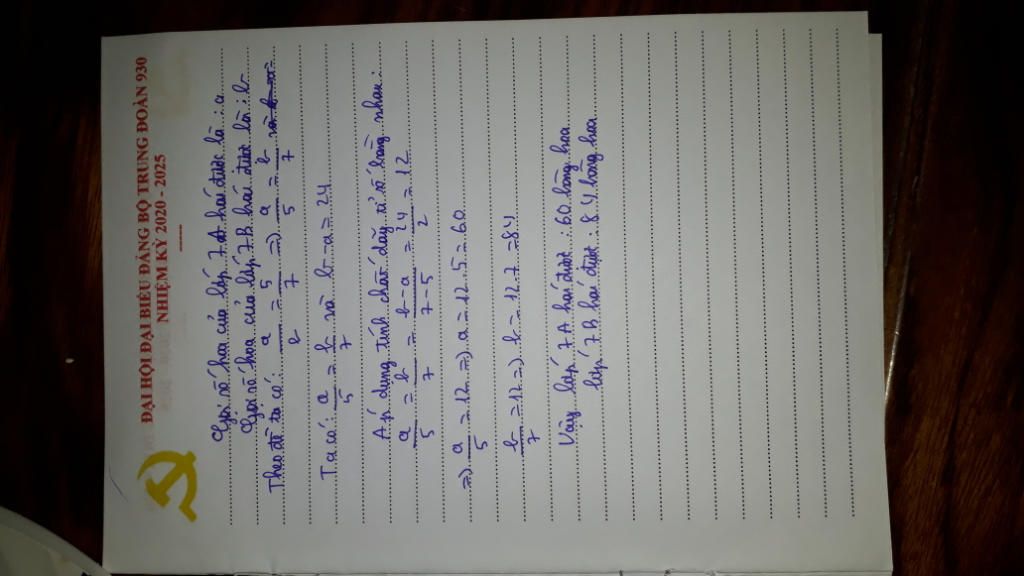 ĐẠI HỘI ĐẠI BIỂU ĐẢNG BỘ TRUNG ĐOÀN 930
NHIỆM KỲ 2020 - 2025
Gọi số hoa của lớp 7A hái được là : a
Gọi số hoa của lớp 7B hái được là : b
Theo đề ta có: a/b = 5/7 => a/5 = b/7
Ta có: a/5 = b/7 và b-a = 24
Áp dụng tính chất dãy tỉ số bằng nhau:
a/5 = b/7 = b-a/7-5 = 24/2 = 12
=> a/5 = 12 => a = 12.5 = 60
b/7 = 12 => b = 12.7 = 84
Vậy lớp 7A hái được : 60 bông hoa
lớp 7B hái được : 84 bông hoa